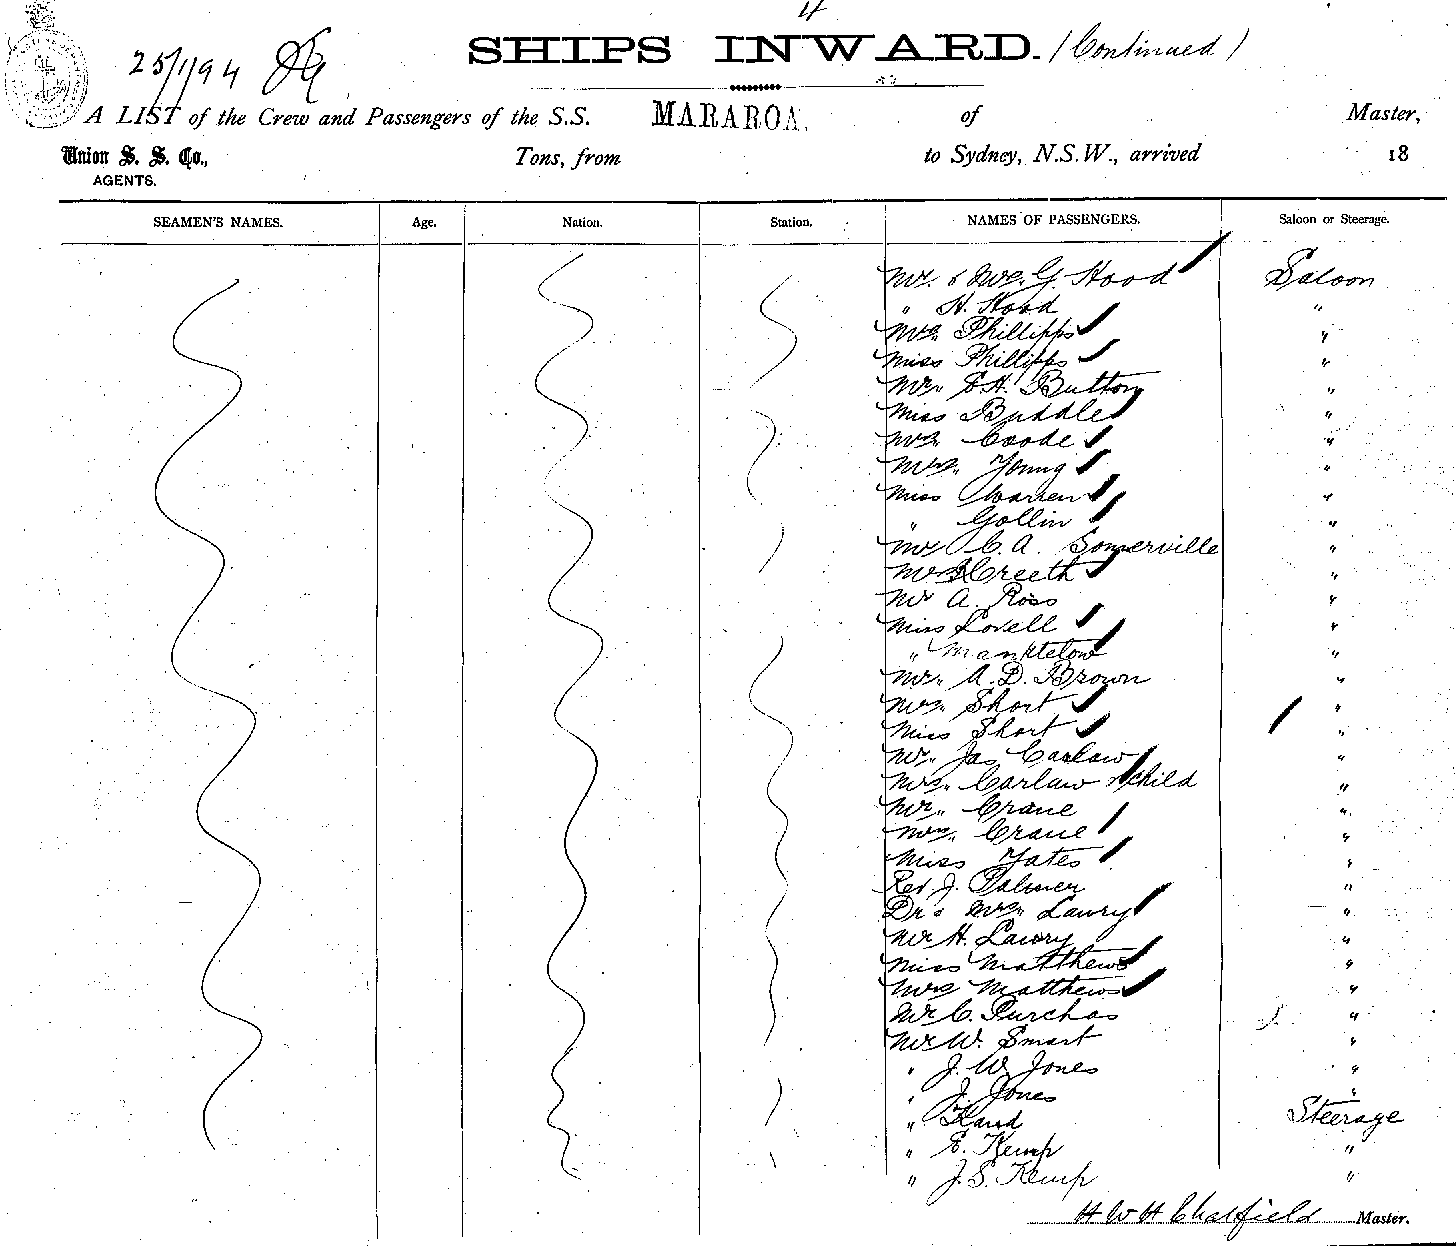 4
SHIPS INWARD. (Continued)
25/1/94
A LIST of the Crew and Passengers of the S.S. MARAROA. of Master,
Union S. S. Co., Tons, from to Sydney, N.S.W., arrived 18
AGENTS.
SEAMEN'S NAMES. Age. Nation. Station. NAMES OF PASSENGERS. Saloon or Steerage.
Mr. & Mrs. G. Hood Saloon
" H. Hood "
Mrs. Phillipps "
Miss Phillipps "
Mr. E.H. Button "
Miss Buddle "
Mrs. Coode "
Mrs. Young "
Miss Warren "
" Gollin "
Mr C. A. Somerville "
Mrs Creeth "
Mr A. Ross "
Miss Lovell "
" Manktelow "
Mr. A. D. Brown "
Mrs. Short "
Miss Short "
Mr. Jas Carlaw "
Mrs. Carlaw & child "
Mr. Crane "
Mrs. Crane "
Miss Yates "
Rev J. Palmer "
Dr & Mrs. Lawry "
Mr H. Lawry "
Miss Matthews "
Mrs Matthews "
Mr C. Purchas "
Mr W. Smart "
" J. W. Jones "
" J. Jones "
" Hand Steerage
" E. Kemp "
" J. S. Kemp "
H W H Chatfield Master.